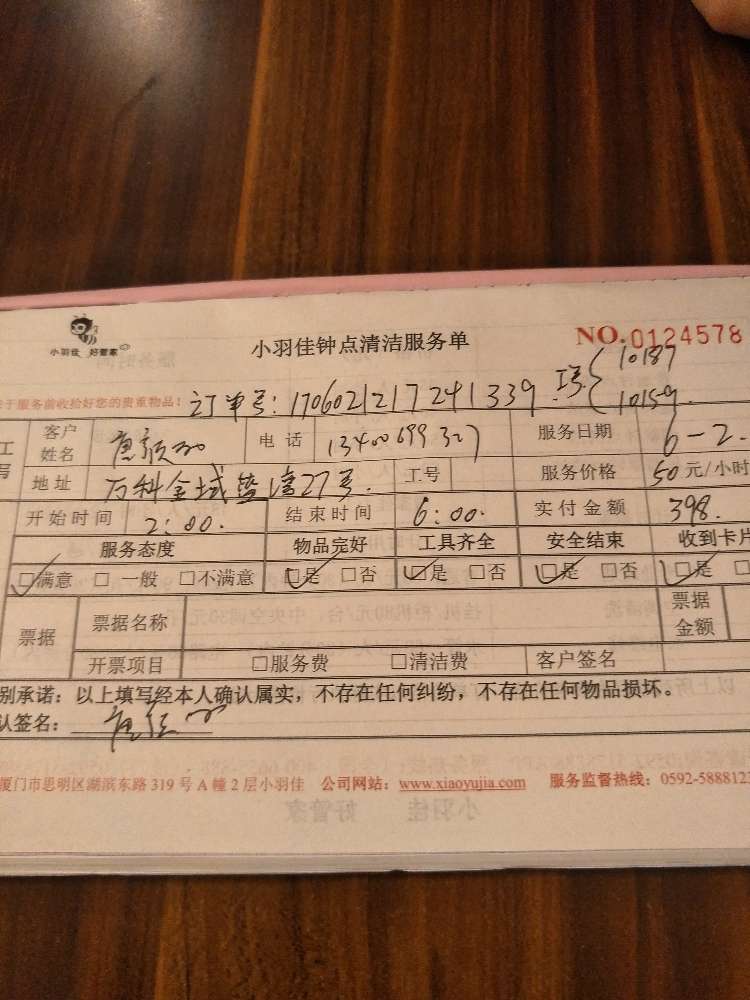 小羽佳 好管家
小羽佳钟点清洁服务单
NO.0124578
于服务前收拾好您的贵重物品！ 订单号：170602121724 1339 工号 10187
10159.
工 客户姓名 电话 13400699327 服务日期 6-2.
写 地址 万科金域蓝湾27号. 工号 服务价格 50元/小时
开始时间 2:00. 结束时间 6:00. 实付金额 398.
服务态度 物品完好 工具齐全 安全结束 收到卡片
☑满意 □ 一般 □不满意 ☑是 □否 ☑是 □否 ☑是 □否 ☑是
票据 票据名称 票据金额
开票项目 □服务费 □清洁费 客户签名
别承诺：以上填写经本人确认属实，不存在任何纠纷，不存在任何物品损坏。
认签名：
厦门市思明区湖滨东路 319 号 A 幢 2 层小羽佳 公司网站：www.xiaoyujia.com 服务监督热线：0592-588812